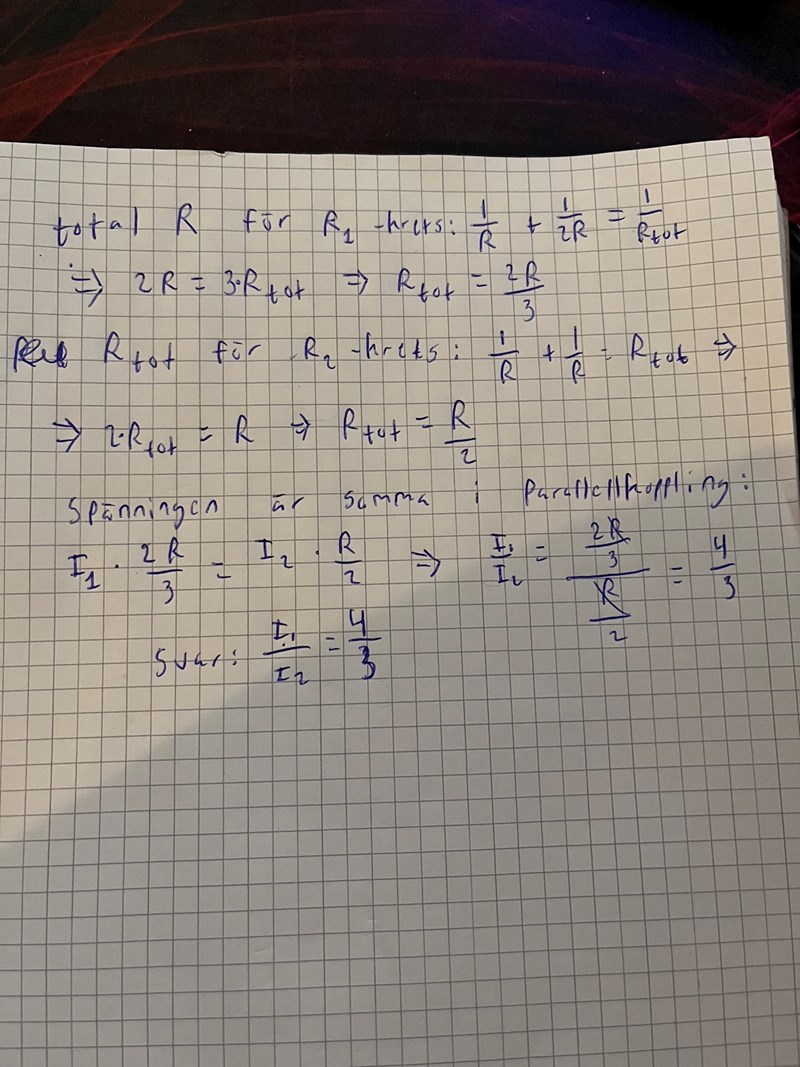 total R för R₁-krets: 1/R + 1/2R = 1/Rtot
⇒ 2R = 3·Rtot ⇒ Rtot = 2R/3
Rtot för R₂-krets: 1/R + 1/R = Rtot ⇒
⇒ 2·Rtot = R ⇒ Rtot = R/2
Spänningen är samma i Parallellkoppling:
I₁ · 2R/3 = I₂ · R/2 ⇒ I₁/I₂ = (2R/3)/(R/2) = 4/3
Svar: I₁/I₂ = 4/3